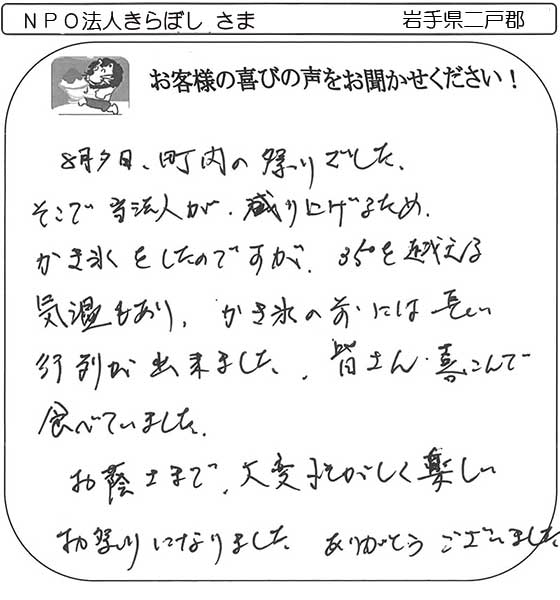 NPO法人きらぼし さま
岩手県二戸郡
お客様の喜びの声をお聞かせください！
8月9日、町内の祭りでした、
そこで当法人が、盛り上げるため、
かき氷をしたのですが、35°を越える
気温もあり、かき氷の前には長い
行列が出来ました、皆さん喜こんで
食べていました。
お蔭さまで、大変いそがしく楽しい
お祭りになりました ありがとうございました